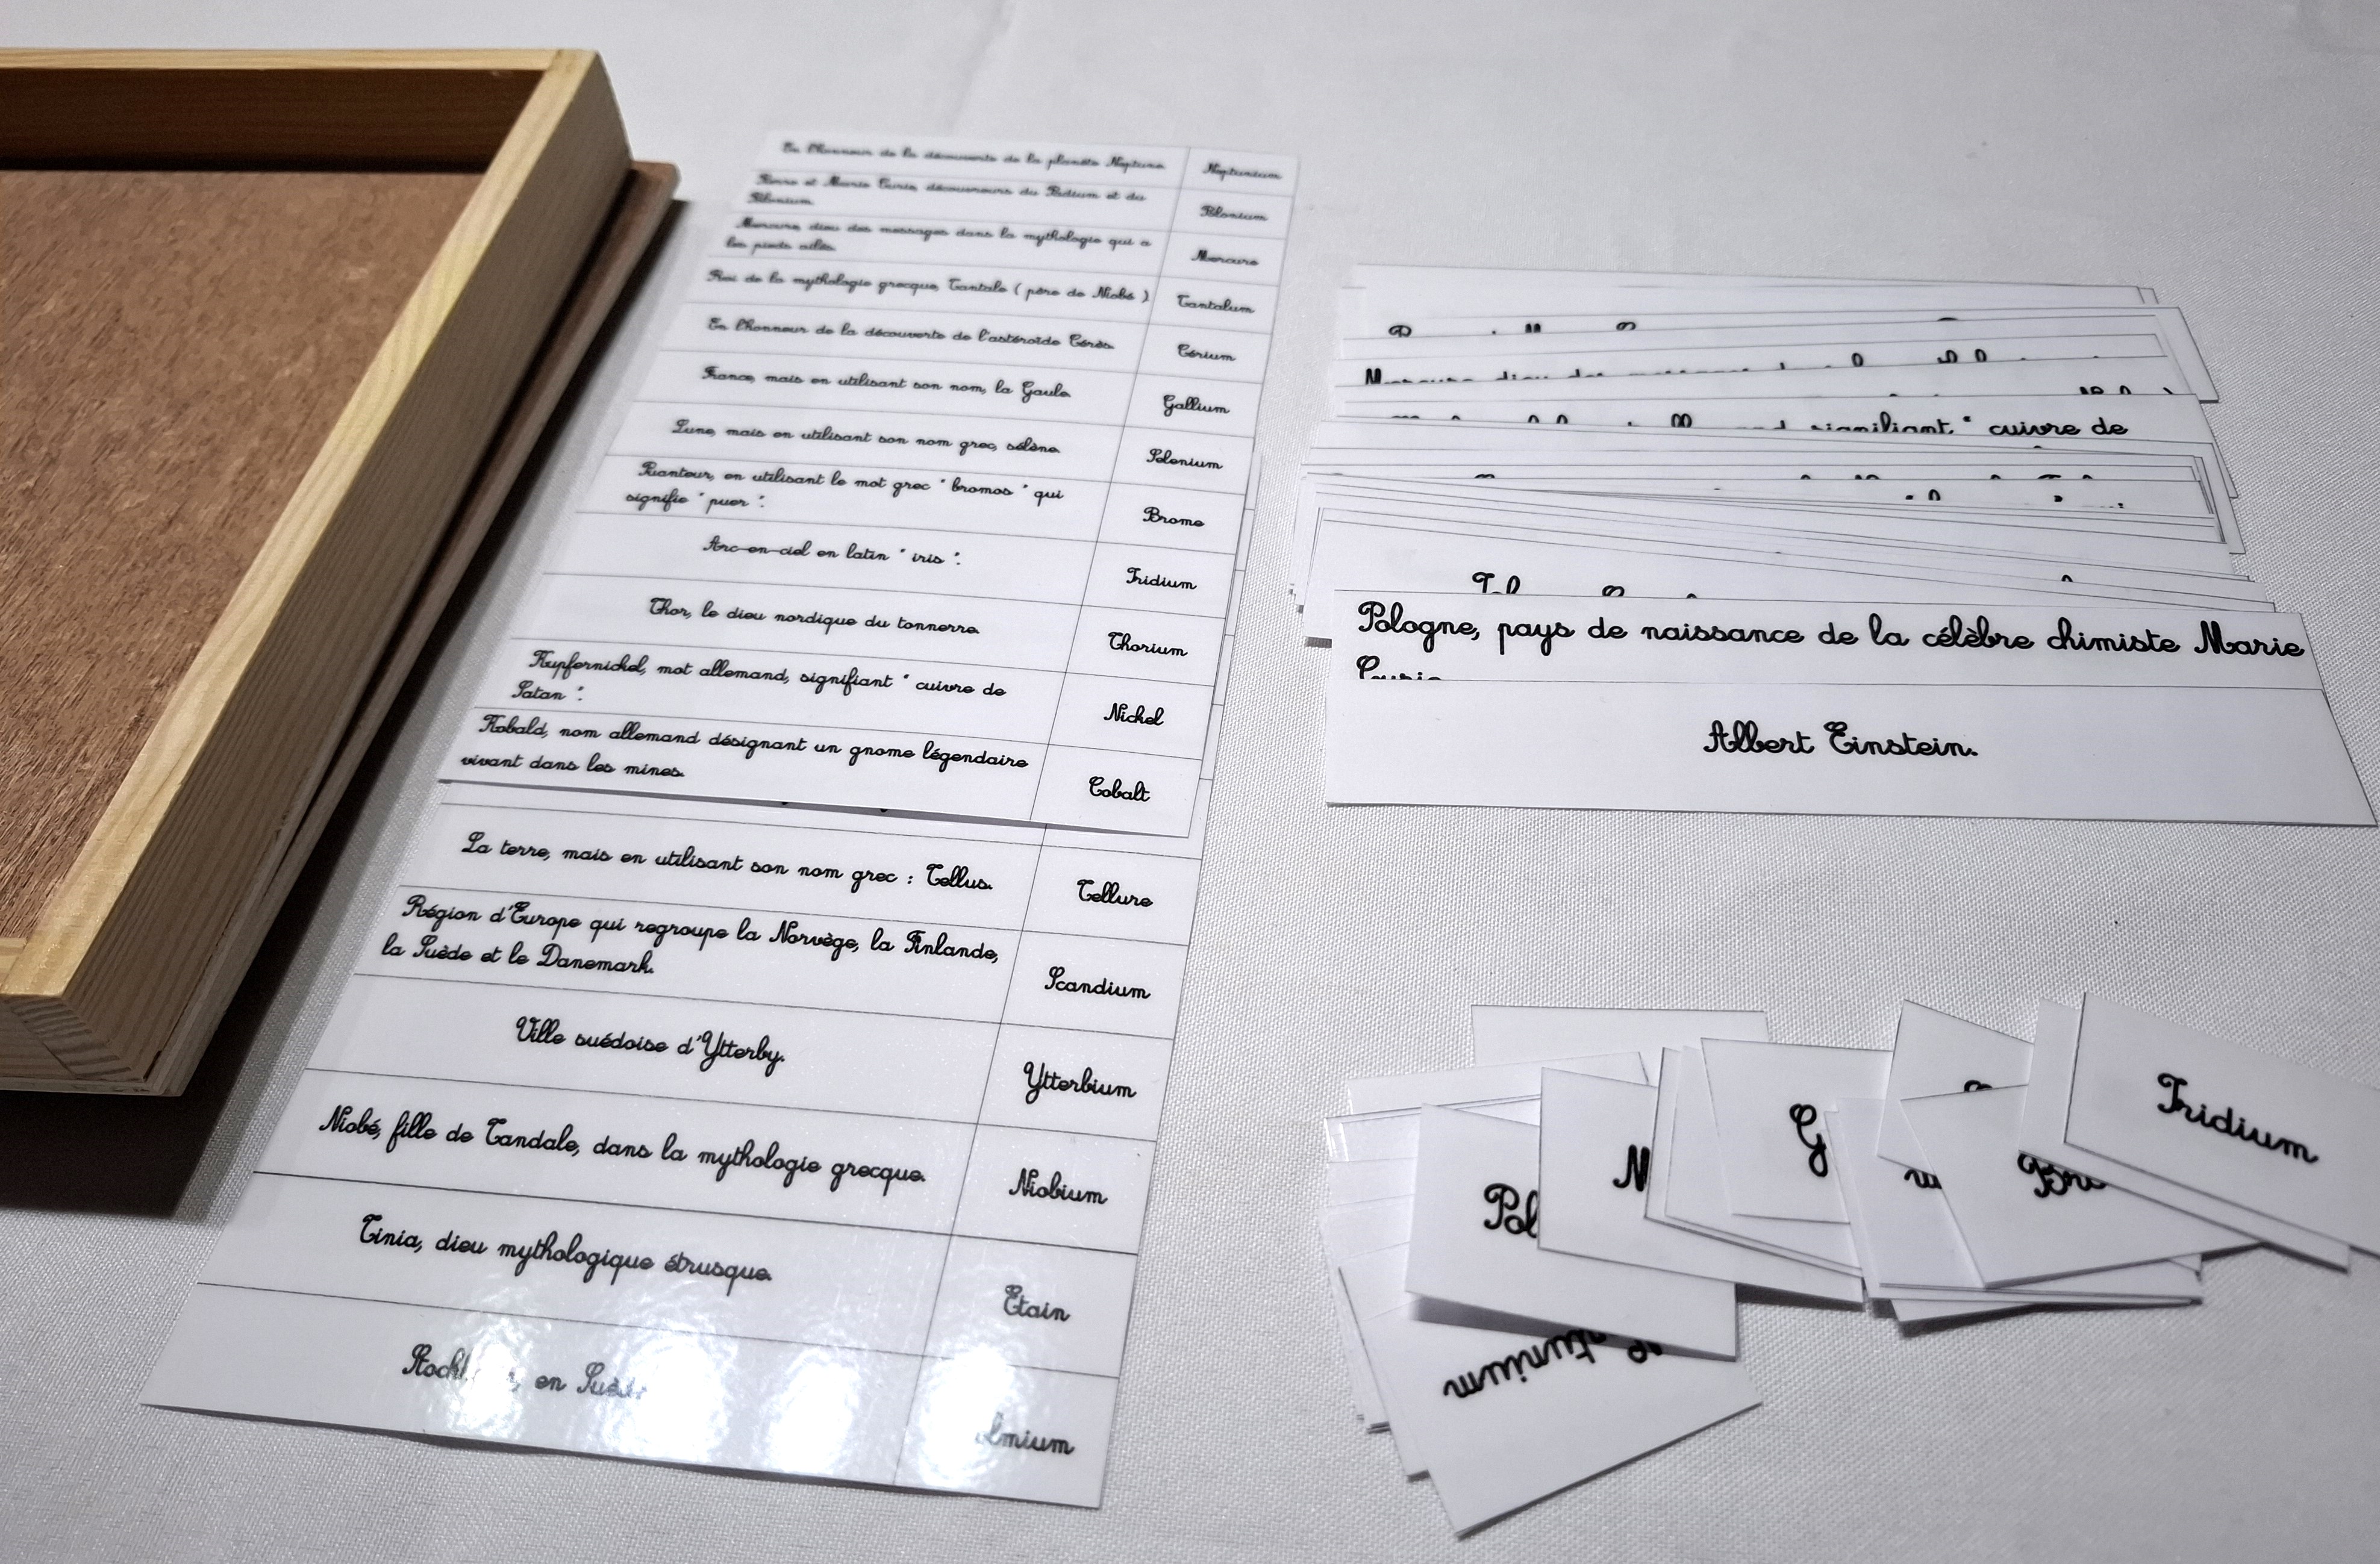 En l'honneur de la découverte de la planète Neptune. Neptunium
Pierre et Marie Curie, découvreurs du Radium et du
Polonium. Polonium
Mercure, dieu des messages dans la mythologie qui a
les pieds ailés. Mercure
Roi de la mythologie grecque, Tantale ( père de Niobé ) Tantalum
En l'honneur de la découverte de l'astéroïde Cérès. Cérium
France, mais en utilisant son nom, la Gaule. Gallium
Lune, mais en utilisant son nom grec, séléne. Selenium
Puanteur, en utilisant le mot grec " bromos " qui
signifie " puer ". Brome
Arc-en-ciel en latin " iris ". Iridium
Thor, le dieu nordique du tonnerre. Thorium
Kupfernickel, mot allemand, signifiant " cuivre de
Satan ". Nickel
Kobald, nom allemand désignant un gnome légendaire
vivant dans les mines. Cobalt
La terre, mais en utilisant son nom grec : Tellus. Tellure
Région d'Europe qui regroupe la Norvège, la Finlande,
la Suède et le Danemark. Scandium
Ville suédoise d'Ytterby. Ytterbium
Niobé, fille de Tandale, dans la mythologie grecque. Niobium
Tinia, dieu mythologique étrusque. Etain
en Suède
signifiant " cuivre de
Pologne, pays de naissance de la célèbre chimiste Marie
Curie
Albert Einstein.
Pol
N
G
Bro
Iridium